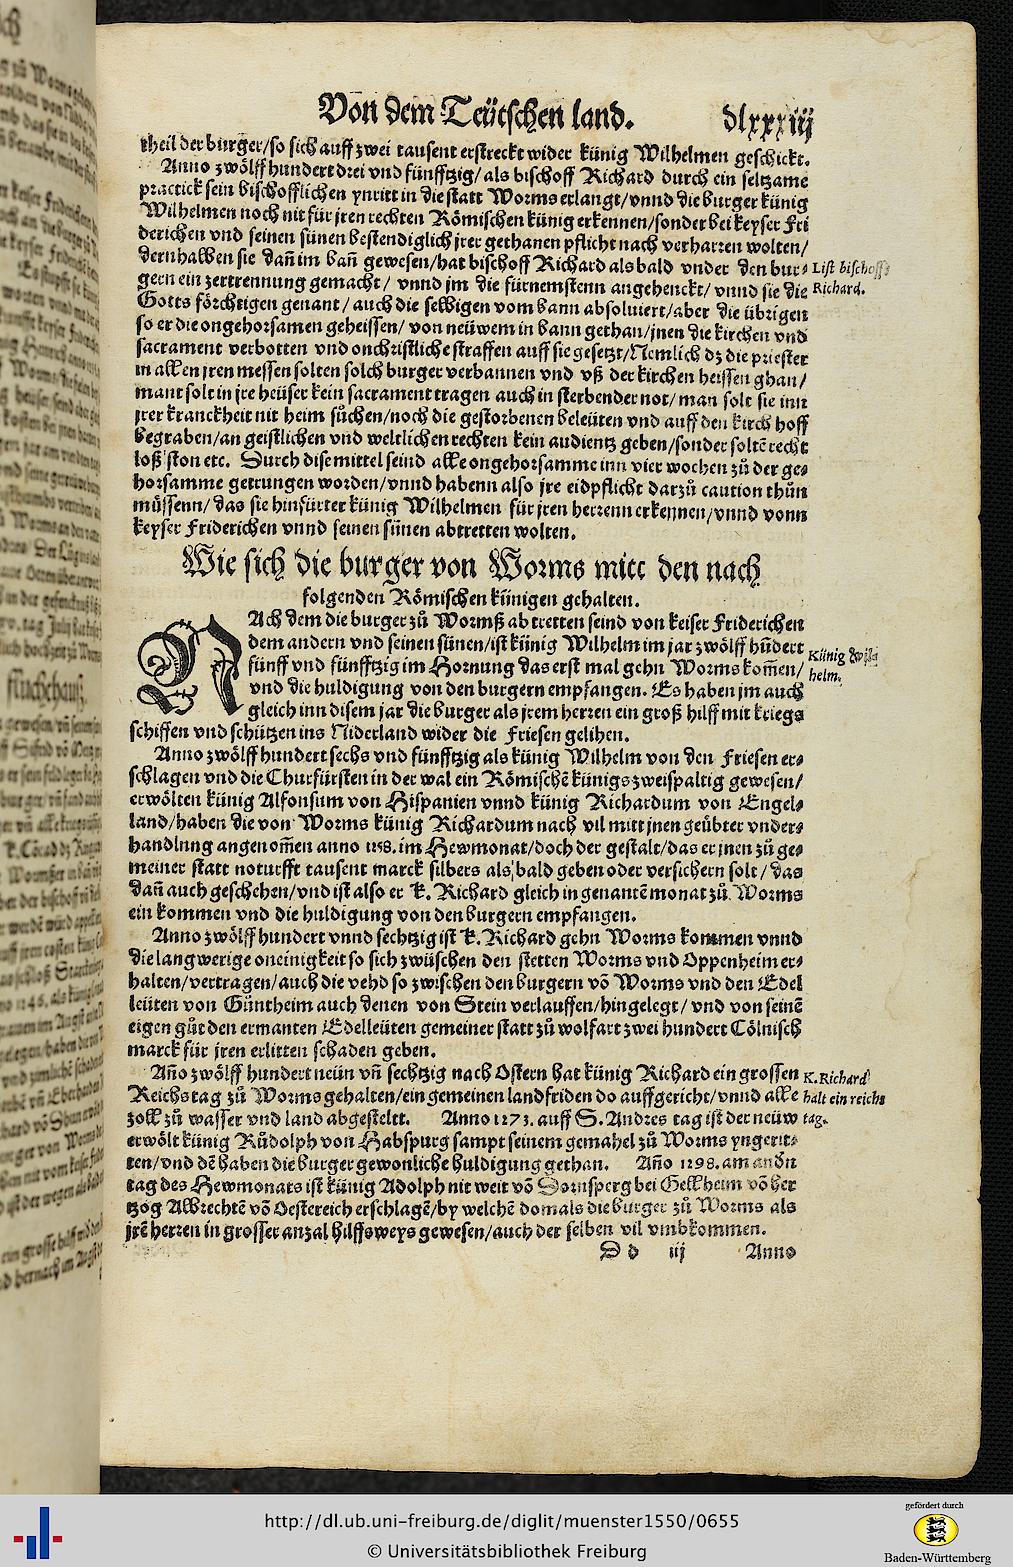 Von dem Teütschen land. dlxxxiij
theil der burger/so sich auff zwei tausent erstreckt wider künig Wilhelmen geschickt.
Anno zwölff hundert drei vnd fünfftzig/als bischoff Richard durch ein seltzame
practick sein bischofflichen ynritt in die statt Worms erlangt/vnnd die burger künig
Wilhelmen noch nit für jren rechten Römischen künig erkennen/sonder bei keyser Fri
derichen vnd seinen sünen bestendiglich jrer gethanen pflicht nach verharren wolten/
dernhalben sie dañ im bañ gewesen/hat bischoff Richard als bald vnder den bur⸗
List bischoffs
Richard.
gern ein zertrennung gemacht/ vnnd jm die fürnemstenn angehenckt/ vnnd sie die
Gotts förchtigen genant/ auch die selbigen vom bann absoluiert/aber die übrigen
so er die ongehorsamen geheissen/ von neüwem in bann gethan/jnen die kirchen vnd
sacrament verbotten vnd onchristliche straffen auff sie gesetzt/Nemlich dz die priester
in allen jren messen solten solch burger verbannen vnd vß der kirchen heissen ghan/
mant solt in jre heüser kein sacrament tragen auch in sterbender not/ man solt sie inn
jrer kranckheit nit heim sůchen/noch die gestorbenen beleüten vnd auff den kirch hoff
begraben/an geistlichen vnd weltlichen rechten kein audientz geben/sonder soltē recht
loß ston etc. Durch dise mittel seind alle ongehorsamme inn vier wochen zů der ge⸗
horsamme getrungen worden/vnnd habenn also jre eidpflicht darzů caution thůn
müssenn/ das sie hinfürter künig Wilhelmen für jren herrenn erkennen/vnnd vonn
keyser Friderichen vnnd seinen sünen abtretten wolten.
Wie sich die burger von Worms mitt den nach
folgenden Römischen künigen gehalten.
NAch dem die burger zů Wormß ab tretten seind von keiser Friderichen
dem andern vnd seinen sünen/ist künig Wilhelm im jar zwölff hūdert
Künig Wil
helm.
fünff vnd fünfftzig im Hornung das erst mal gehn Worms kom̄en/
vnd die huldigung von den burgern empfangen. Es haben jm auch
gleich inn disem jar die burger als jrem herren ein groß hilff mit kriegs
schiffen vnd schützen ins Niderland wider die Friesen gelihen.
Anno zwölff hundert sechs vnd fünfftzig als künig Wilhelm von den Friesen er⸗
schlagen vnd die Churfürsten in der wal ein Römischē künigs zweispaltig gewesen/
erwölten künig Alfonsum von Hispanien vnnd künig Richardum von Engel⸗
land/haben die von Worms künig Richardum nach vil mitt jnen geübter vnder⸗
handlung angenom̄en anno 1158. im Hewmonat/doch der gestalt/das er jnen zů ge⸗
meiner statt noturfft tausent marck silbers als bald geben oder versichern solt/ das
dañ auch geschehen/vnd ist also er K. Richard gleich in genantē monat zů Worms
ein kommen vnd die huldigung von den burgern empfangen.
Anno zwölff hundert vnnd sechtzig ist K. Richard gehn Worms kommen vnnd
die langwerige oneinigkeit so sich zwüschen den stetten Worms vnd Oppenheim er⸗
halten/vertragen/auch die vehd so zwischen den burgern vō Worms vnd den Edel
leüten von Güntheim auch denen von Stein verlauffen/hingelegt/ vnd von seinē
eigen gůt den ermanten Edelleüten gemeiner statt zů wolfart zwei hundert Cölnisch
marck für jren erlitten schaden geben.
Añno zwölff hundert neün vñ sechtzig nach Ostern hat künig Richard ein grossen
K. Richard
halt ein reichs
tag.
Reichs tag zů Worms gehalten/ein gemeinen landfriden do auffgericht/vnnd alle
zoll zů wasser vnd land abgestellt. Anno 1273. auff S. Andres tag ist der neüw
erwölt künig Růdolph von Habspurg sampt seinem gemahel zů Worms yngerit⸗
ten/vnd dē haben die burger gewonliche huldigung gethan. Año 1298. am andn̄
tag des Hewmonats ist künig Adolph nit weit vō Dornsperg bei Gellheim vō her
tzog Albrechtē vō Oestereich erschlagē/by welchē domals die burger zů Worms als
jrē herren in grosser anzal hilffsweys gewesen/auch der selben vil vmbkommen.
D d iij Anno
http://dl.ub.uni-freiburg.de/diglit/muenster1550/0655
© Universitätsbibliothek Freiburg
gefördert durch
Baden-Württemberg